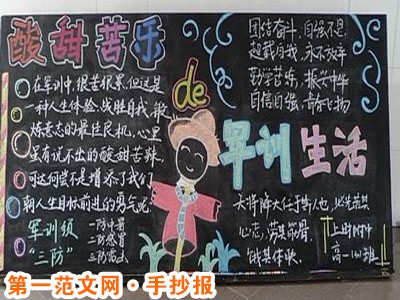 酸甜苦乐
de
军训生活
在军训中，很苦很累，但这是
一种人生体验，战胜自我，锻
炼意志的最佳良机，心里
虽有说不出的酸甜苦辣，
可这何尝不是增添了我们
朝人生目标前进的勇气呢
军训级
"三防"
一防中暑
二防感冒
三防
团结奋斗，自强不息
超越自我，永不放弃
勤学苦练，振兴中华
自信自强，青春飞扬
天将降大任于斯人也，必先苦其
心志，劳其筋骨，
饿其体肤。
第一范文网·手抄报